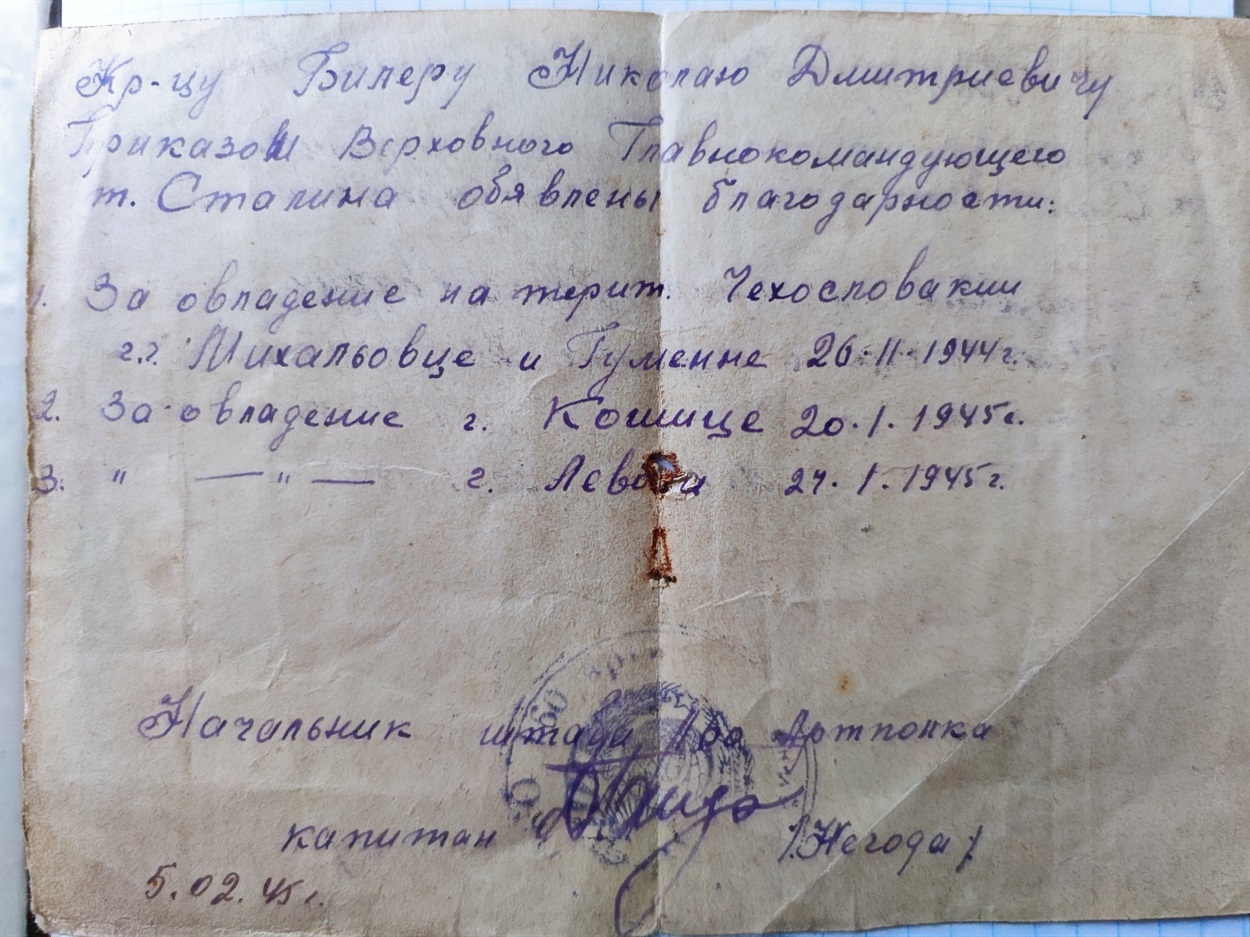 Кр-цу Билеру Николаю Дмитриевичу
Приказом Верховного Главнокомандующего
т. Сталина обявлены благодарности:
1. За овладение на терит. Чехословакии
г.г. Михальовце и Гуменне 26.11.1944г.
2. За овладение г. Кошице 20.1.1945г.
3. " — " — г. Левоча 27.1.1945г.
Начальник штаба Артполка
капитан /Негода/
5.02.45г.